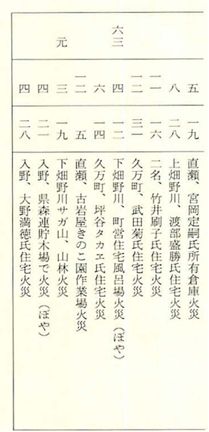 五 一九 直瀬、宮岡定嗣氏所有倉庫火災
八 二八 上畑野川、渡部盛勝氏住宅火災
一一 一六 二名、竹井刷子氏住宅火災
一二 三一 久万町、武田菊氏住宅火災
六三 四 一二 下畑野川、町営住宅風呂場火災(ぼや)
六 一四 久万町、坪谷タカヱ氏住宅火災
一二 五 直瀬、古岩屋きのこ園作業場火災
元 三 一九 下畑野川サガ山、山林火災
四 二一 入野、県森連貯木場で火災(ぼや)
四 二八 入野、大野満徳氏住宅火災